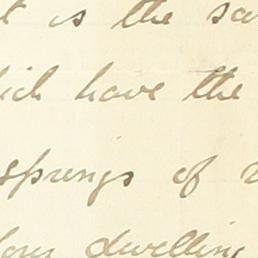 t is the sa
ich have the
springs of
your dwelling